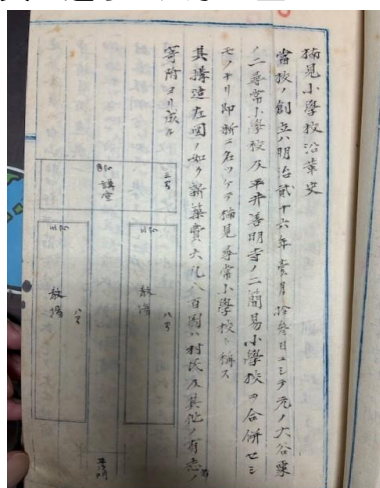 猯見小學校沿革史
當校ノ創立ハ明治貳十六年壹月拾參日ニシテ元ノ大谷東
ノ二尋常小學校及平井善明寺ノ二簡易小學校ヲ合併セシ
モノナリ即新ニ名ツケテ猯見尋常小學校ト稱ス
其構造左図ノ如ク新築費大凡八百圓ハ村民及其他ノ有志ノ
寄附ヨリ成ル
講堂
教場
八間
教場
八間